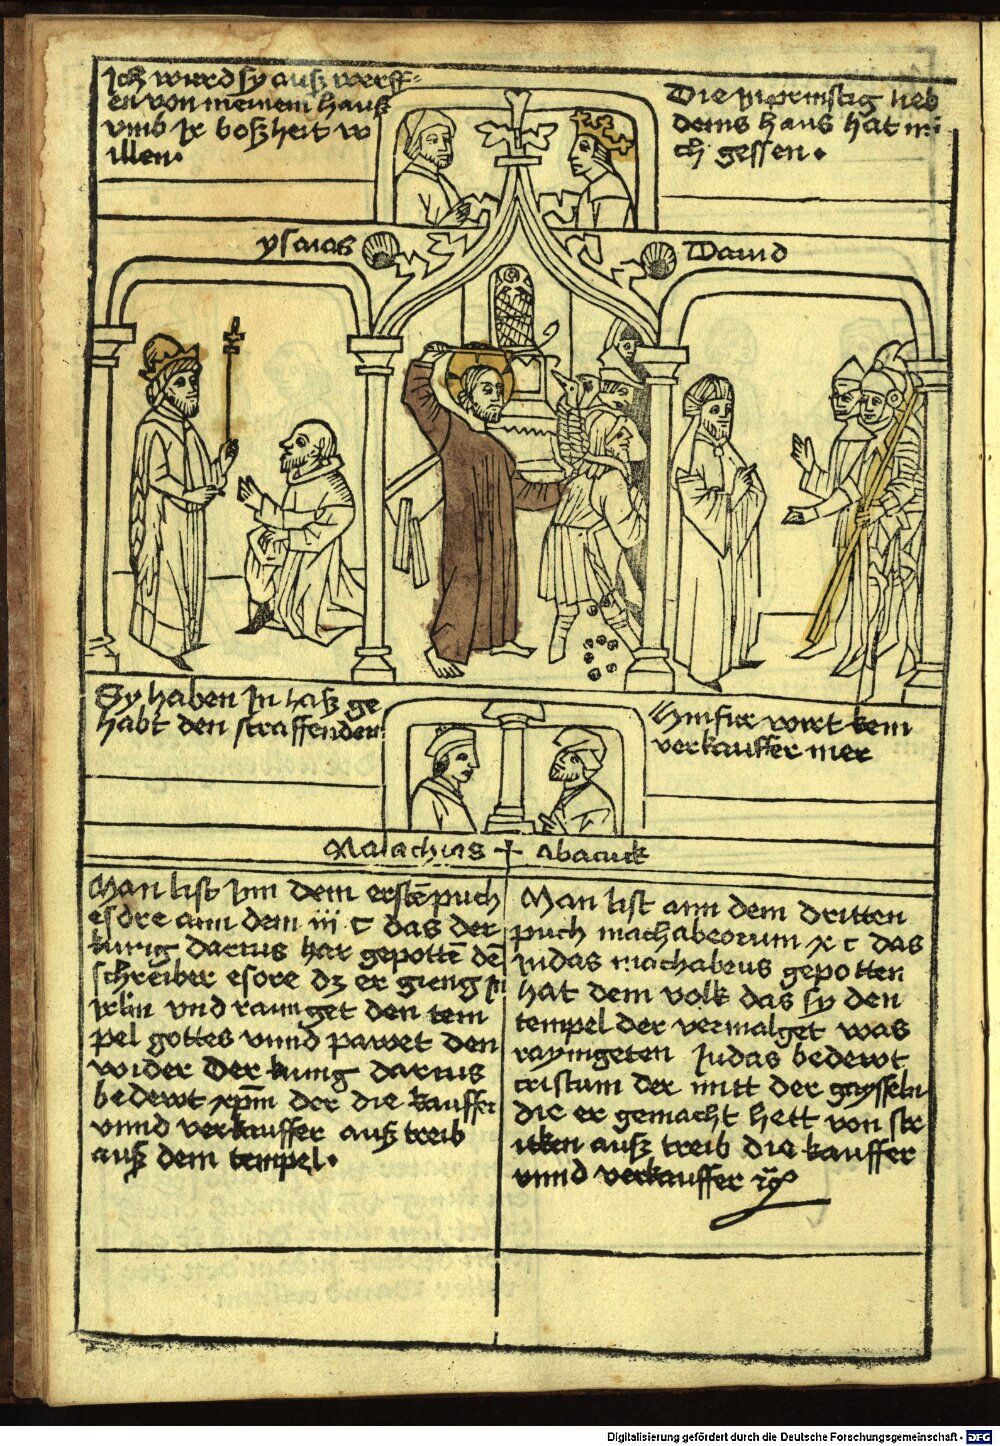 Ich wurd sy ausz werff-
en von meinem hausz
vmb Ir boszheit w
illen.
Die inprinstig lieb
deins haus hat mi
ch gessen.
ysaias
Dauid
Sy haben In hasz ge
habt den straffenden
Hinfur wirt kein
verkauffer mer
Malachias
Abacuck
Man list Inn dem erstē puch
esdre ann dem iij c das der
kunig darius hat gepottē dē
schreiber esdre dz er gieng In
Irlm vnd raumget den tem
pel gottes vnnd pawet den
wider Der kunig darius
bedewt xp̄m der die kauffer
vnnd verkauffer ausz treib
ausz dem tempel.
Man list ann dem dritten
puch machabeorum x c das
Iudas machabeus gepotten
hat dem volk das sy den
tempel der vermalget was
rayingeten Iudas bedewt
cristum der mitt der gaysseln
die er gemacht hett von str
icken ausz treib die kauffer
vnnd verkauffer
Digitalisierung gefördert durch die Deutsche Forschungsgemeinschaft - DFG